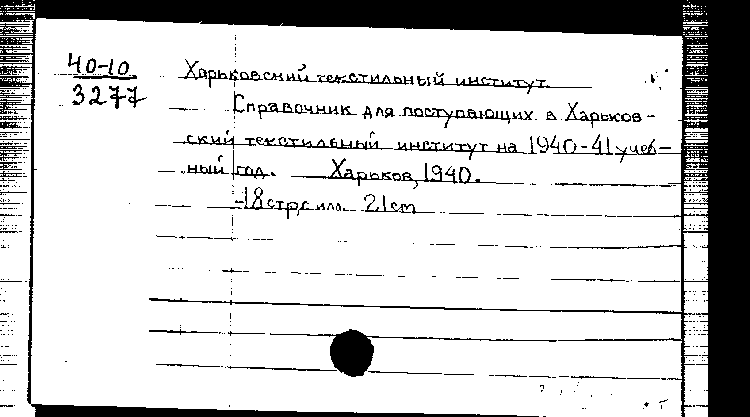 40-10
3277
Харьковский текстильный институт.
Справочник для поступающих в Харьков-
ский текстильный институт на 1940-41 учеб-
ный год. Харьков, 1940.
18 стр, с илл. 21 cm